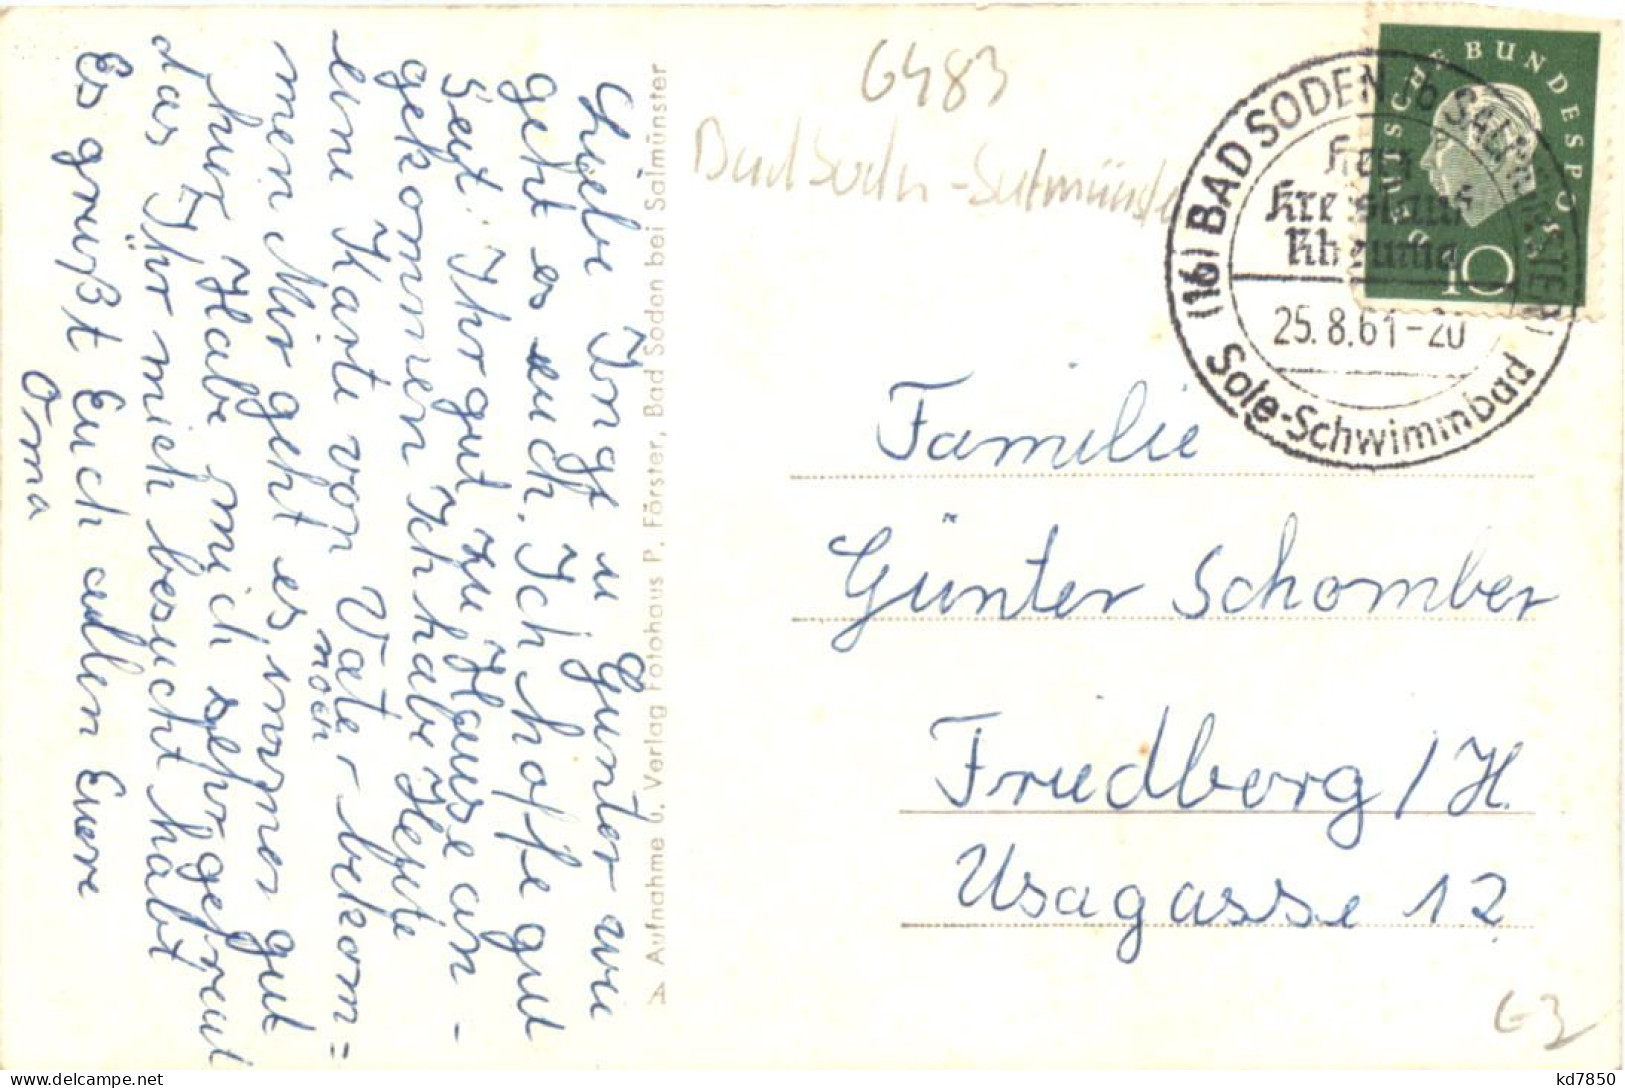 Liebe Inge u. Günter wie
geht es euch. Ich hoffe gut
Seyt Ihr gut zu Hause an-
gekommen Ich habe Heute
eine Karte von Vater bekom=
noch
men Mir geht es immer gut
hier Habe mich sehr gefreut
das Ihr mich besucht habt
Es grüßt Euch allen Euere
Oma
A Aufnahme u. Verlag Fotohaus P. Förster, Bad Soden bei Salmünster
6483
Bad Soden-Salmünster
DEUTSCHE BUNDESPOST
10
(16) BAD SODEN b SALMÜNSTER
Herz
Kreislauf
Rheuma
25.8.61-20
Sole-Schwimmbad
Familie
Günter Schomber
Friedberg / H.
Usagasse 12
G3
kd7850